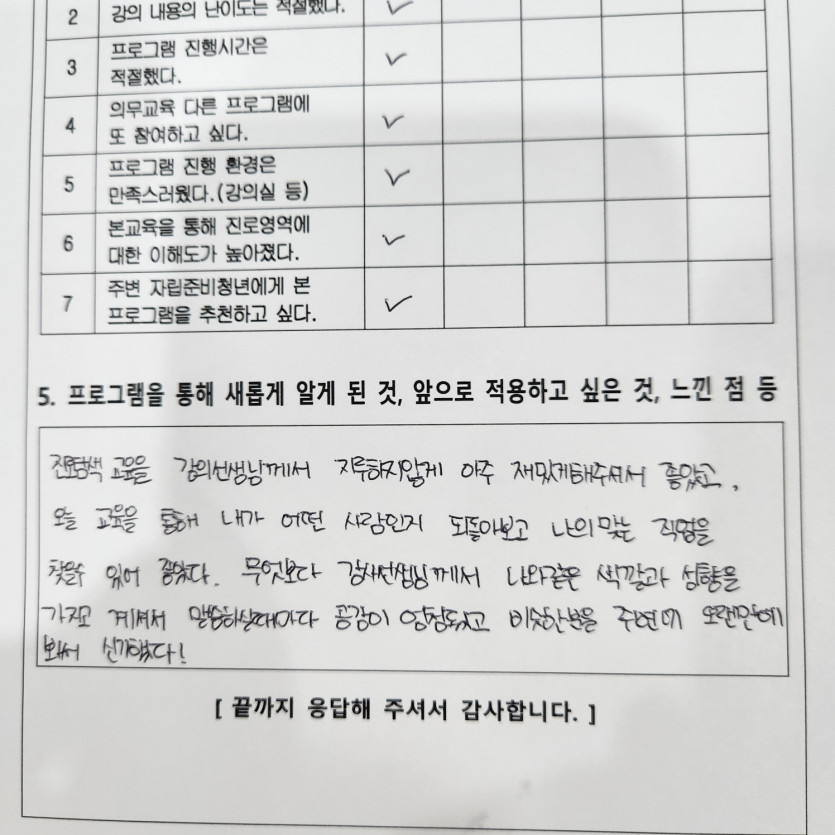 2 강의 내용의 난이도는 적절했다. ✓
3 프로그램 진행시간은
적절했다. ✓
4 의무교육 다른 프로그램에
또 참여하고 싶다. ✓
5 프로그램 진행 환경은
만족스러웠다.(강의실 등) ✓
6 본교육을 통해 진로영역에
대한 이해도가 높아졌다. ✓
7 주변 자립준비청년에게 본
프로그램을 추천하고 싶다. ✓
5. 프로그램을 통해 새롭게 알게 된 것, 앞으로 적용하고 싶은 것, 느낀 점 등
진로탐색 교육을 강의선생님께서 지루하지않게 아주 재밌게해주셔서 좋았고,
오늘 교육을 통해 내가 어떤 사람인지 되돌아보고 나의맞는 직업을
찾을수 있어 좋았다. 무엇보다 강사선생님께서 나와같은 색깔과 성향을
가지고 계셔서 말씀하실때마다 공감이 엄청됐고 비슷한분을 주변에 오랜만에
봐서 신기했다!
[ 끝까지 응답해 주셔서 감사합니다. ]